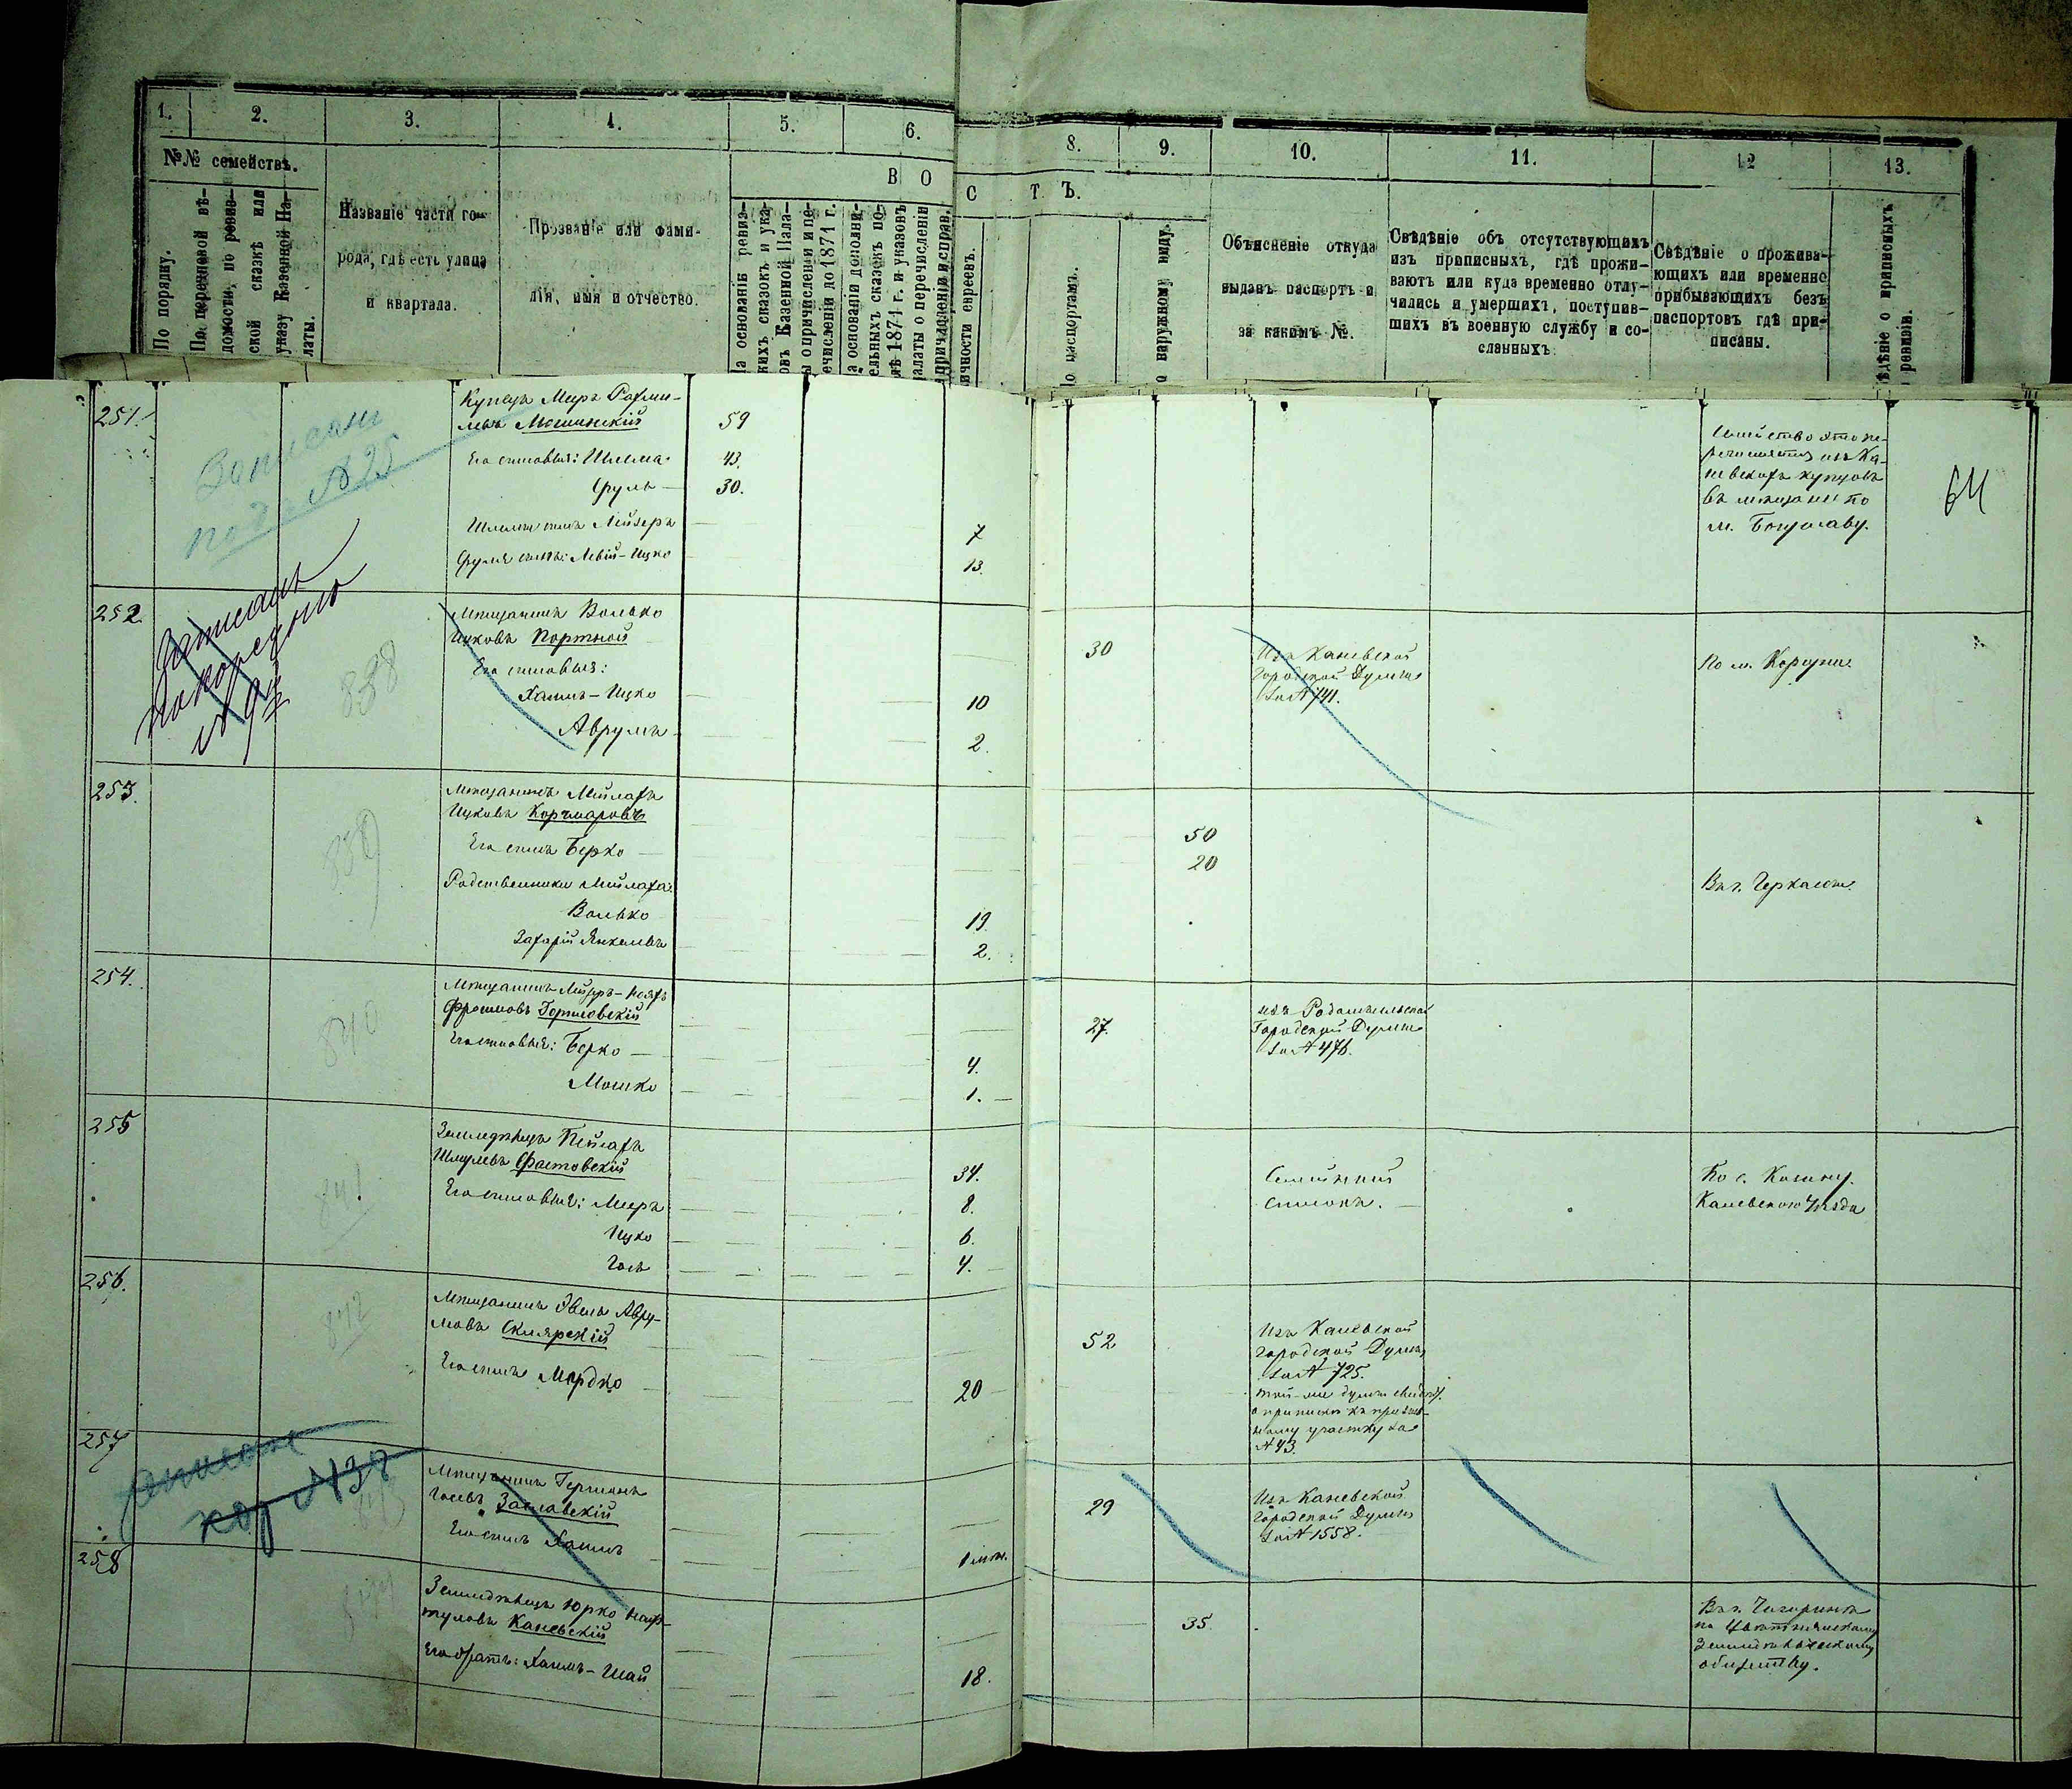 1. 2. 3. 4. 5. 6. 8. 9. 10. 11. 12 13.
№№ семействъ.
По порядку.
По перехневой вѣ-
домости, по ревиз-
ской сказкѣ или
указу Казенной Па-
латы.
Названіе части го-
рода, гдѣ есть улица
и квартала.
Прозваніе или фами-
лія, имя и отчество.
В О С Т Ъ.
а основаніи ревиз-
кихъ сказокъ и ука-
овъ Казенной Пала-
ы о причисленіи и пе-
ечисленіи до 1871 г.
а основаніи дополни-
ельныхъ сказокъ по-
1871 г. и указовъ
алаты о перечисленіи
причисленіи и справ.
ичности евреевъ.
о паспортамъ.
о наружному виду.
Объясненіе откуда
выданъ паспортъ и
за какимъ №.
Свѣдѣніе объ отсутствующихъ
изъ приписныхъ, гдѣ прожи-
ваютъ или куда временно отлу-
чились и умершихъ, поступив-
шихъ въ военную службу и со-
сланныхъ
Свѣдѣніе о прожива-
ющихъ или временно
прибывающихъ безъ
паспортовъ гдѣ при-
писаны.
ѣдѣніе о приписныхъ
ревизіи.
251.
Записани
подъ № 25
Купецъ Меиръ
Мошинскій 59
Его сыновья: Шлема 43.
Фруль 30.
Шлемы сынъ Лейзеръ 7
Фруля сынъ: Левій-Ицко 13.
Семейство это пе-
речисляется изъ Ка-
невскихъ купцовъ
въ мещане по
м. Богуславу.
252.
Записанъ
по
№ 94
838
Мѣщанинъ Волько
Ицковъ Портной 30
Его сыновья:
Хаимъ-Ицко 10
Аврумъ 2.
Изъ Каневской
Городской Думы
за № 741.
По м. Корсунь.
253.
839
Мѣщанинъ Мейлахъ
Ицковъ Корчмаровъ 50
Его сынъ Берко 20
Родственники Мейлаха:
Волько 19
Захарій Янкелевъ 2.
Въ г. Черкасы.
254.
840
Мѣщанинъ
Фроимовъ 27.
Его сыновья: Берко 4.
Мошко 1.
изъ Радомысльской
Городской Думы
за № 476.
255
841
Земледѣлецъ Пейсахъ
Шмулевъ Фастовскій 34.
Его сыновья: Меиръ 8.
Ицко 6.
Гось 4.
Семейный
списокъ.
По с. Козину.
Каневского Уѣзда
256.
842
Мѣщанинъ Эвель Авру-
мовъ Склярскій 52
Его сынъ Мордко 20
Изъ Каневской
Городской Думы,
за № 725.
той-же думы свидѣт.
о припискѣ къ призыв-
ному участку за
№ 43.
257
кор № 37
Мѣщанинъ Гершонъ
Заславскій 29
Его сынъ Хаимъ 1 мѣс.
Изъ Каневской
Городской Думы
за № 1558.
258
Земледѣлецъ Юрко Наф-
туловъ Каневскій 35
Его братъ: Хаимъ-Шай 18.
Въ г. Чигиринъ
по
Земледѣльческому
обществу.